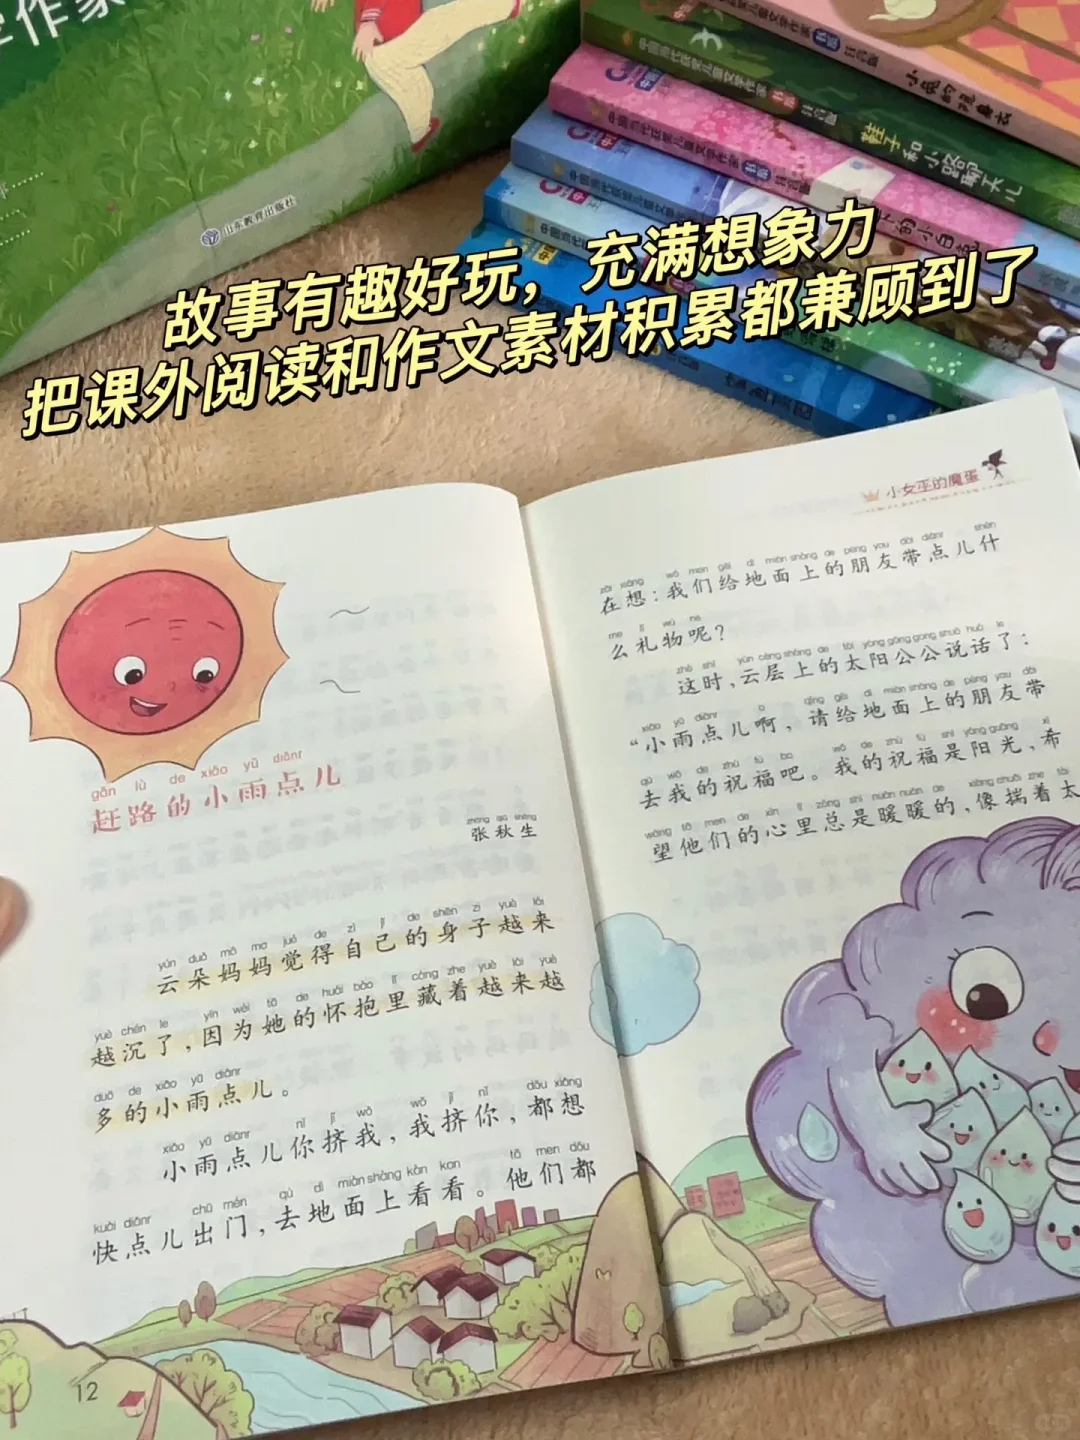 作家
山东教育出版社
中国当代获奖儿童文学作家书系 注音版
小兔的隐身衣
中国当代获奖儿童文学作家书系 注音版
鞋子和小路聊天儿
中国当代获奖儿童文学作家书系 注音版
故事有趣好玩，充满想象力
把课外阅读和作文素材积累都兼顾到了
小女巫的魔蛋
gǎn lù de xiǎo yǔ diǎnr
赶路的小雨点儿
zhāng qiū shēng
张秋生
yún duǒ mā ma jué de zì jǐ de shēn zi yuè lái
云朵妈妈觉得自己的身子越来
yuè chén le yīn wèi tā de huái bào lǐ cáng zhe yuè lái yuè
越沉了，因为她的怀抱里藏着越来越
duō de xiǎo yǔ diǎnr
多的小雨点儿。
xiǎo yǔ diǎnr nǐ jǐ wǒ wǒ jǐ nǐ dōu xiǎng
小雨点儿你挤我，我挤你，都想
kuài diǎnr chū mén qù dì miàn shàng kàn kan tā men dōu
快点儿出门，去地面上看看。他们都
12
zài xiǎng wǒ men gěi dì miàn shàng de péng you dài diǎnr shén
在想：我们给地面上的朋友带点儿什
me lǐ wù ne
么礼物呢？
zhè shí yún céng shàng de tài yáng gōng gong shuō huà le
这时，云层上的太阳公公说话了：
xiǎo yǔ diǎnr a qǐng gěi dì miàn shàng de péng you dài
“小雨点儿啊，请给地面上的朋友带
qù wǒ de zhù fú ba wǒ de zhù fú shì yáng guāng xī
去我的祝福吧。我的祝福是阳光，希
wàng tā men de xīn lǐ zǒng shì nuǎn nuǎn de xiàng chuāi zhe tài
望他们的心里总是暖暖的，像揣着太